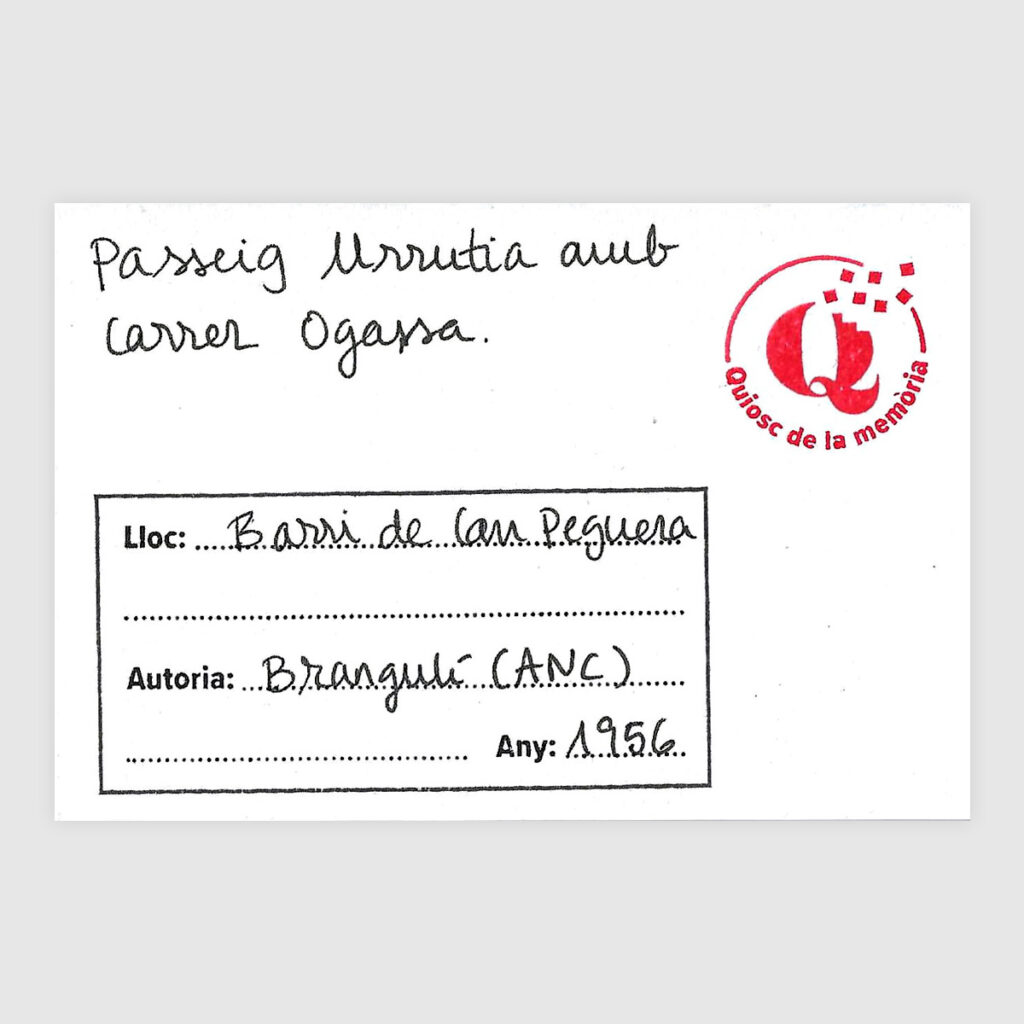 Passeig Urrutia amb
carrer Ogassa.
Quiosc de la memòria
Lloc: Barri de Can Peguera
Autoria: Brangulí (ANC)
Any: 1956